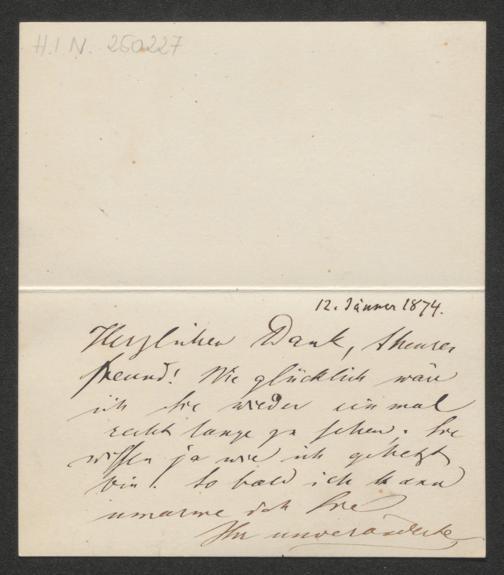 H.I.N. 250227
12. Jänner 1874.
Herzlichen Dank, theurer
Freund! Wie glücklich wäre
ich Sie wieder einmal
recht lange zu sehen. Sie
wissen ja wie ich gehetzt
bin! So bald ich kann
umarme ich Sie
Ihr unveränderte